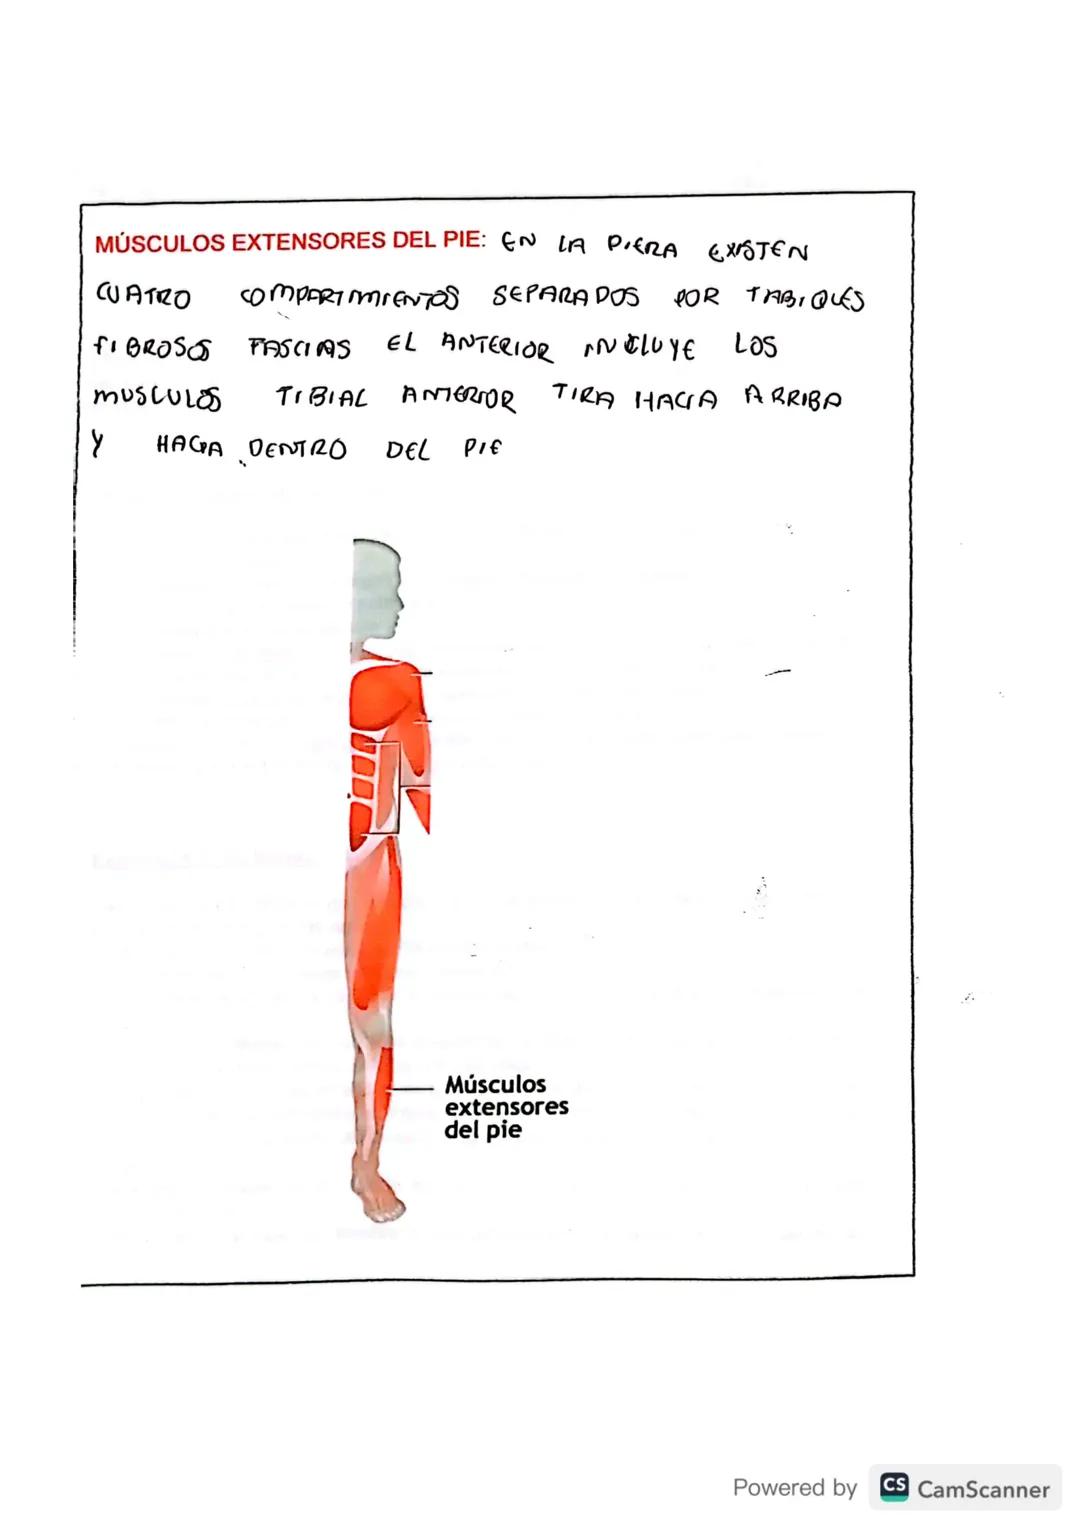 MÚSCULOS EXTENSORES DEL PIE: EN LA PIERA EXISTEN
CUATRO COMPARTIMIENTOS SEPARADOS POR TABIQUES
FIBROSOS FASCIAS EL ANTERIOR INCLUYE LOS
MUSCULOS TIBIAL ANTERIOR TIRA HACIA ARRIBA
Y HACIA DENTRO DEL PIE
Músculos
extensores
del pie
Powered by CS CamScanner